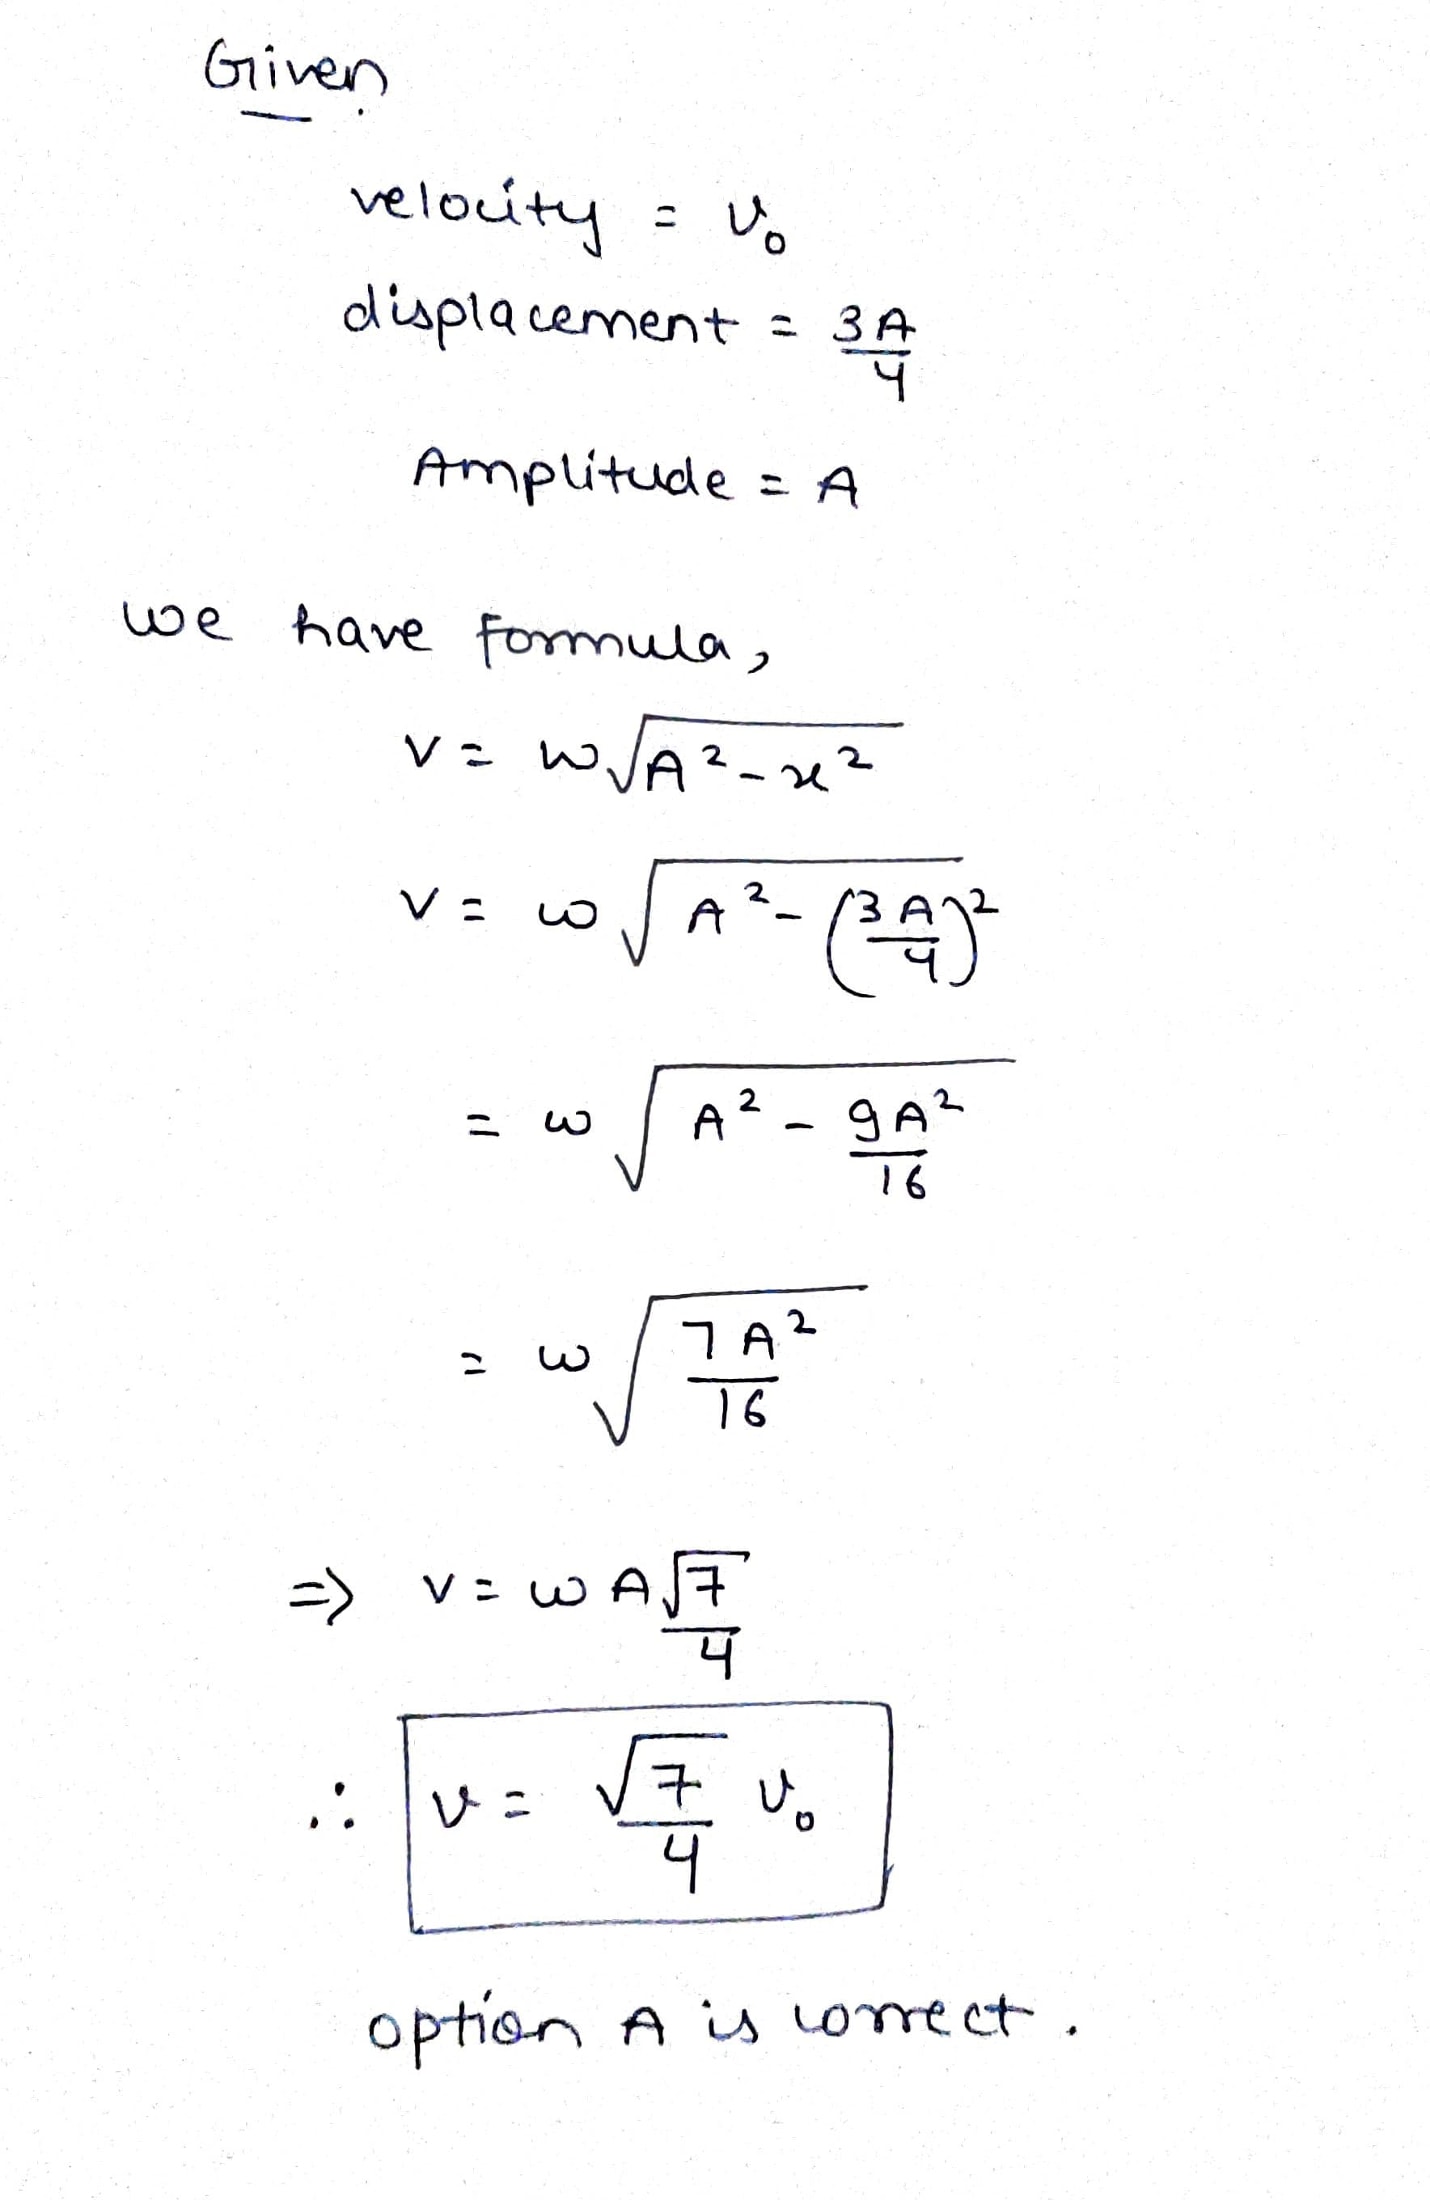 Given
velocity = v₀
displacement = 3A/4
Amplitude = A
we have formula,
v = ω√(A² - x²)
v = ω√(A² - (3A/4)²)
= ω√(A² - 9A²/16)
= ω√(7A²/16)
=> v = ωA√7/4
∴ v = √7/4 v₀
option A is correct.